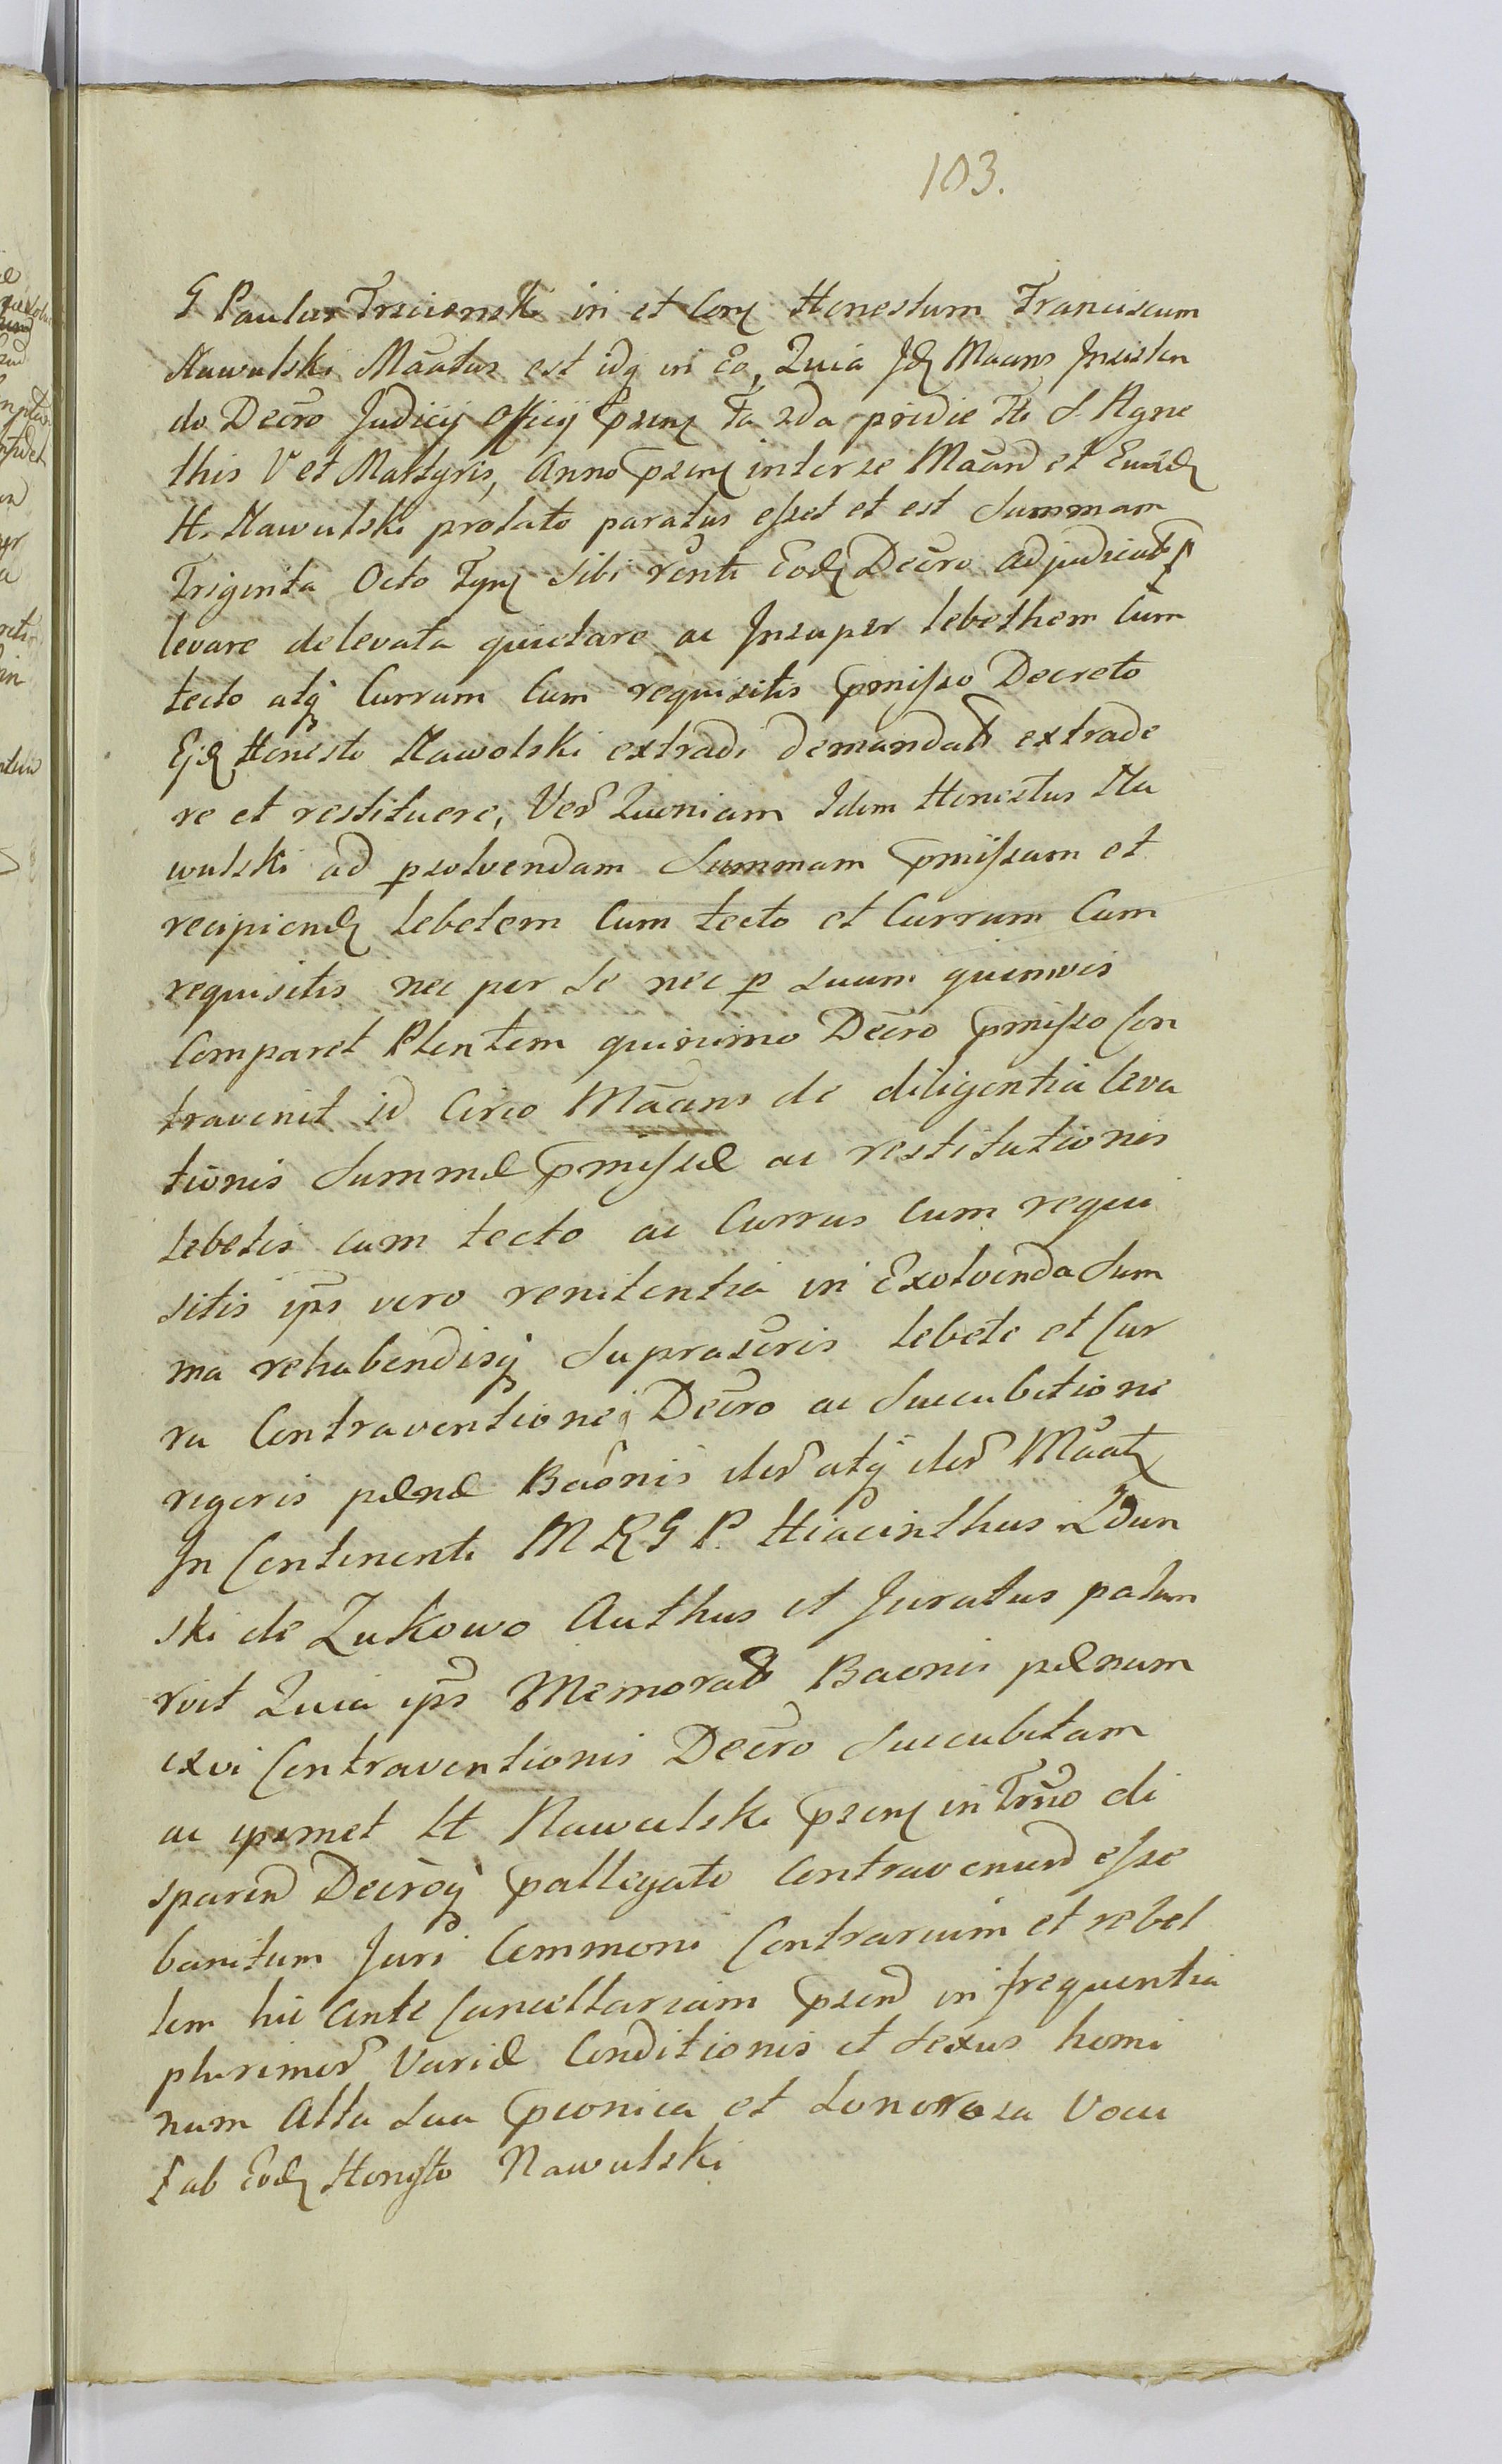 103.
G Paulus Trscienski in et Conz Honestum Franciscum
Nawulski Maatus est idq in Eo, Quia Jdz Maans Jnsisten
do Decro Judicij Officij Pzenz Fa 2da pridie Fti S. Agne
this V et Martyris, Anno pzenz inter se Maand et Eundz
H. Nawulski prolato paratus esset et est Summam
Triginta Octo Tynz Sibi venti Eodz Decro adjudicat f
levare delevata quietare ac Jnsuper lebethem Cum
tecto atq Currum Cum requisitis pmisso Decreto
Ejdz Honesto Nawolski extradi demandat extrade
re et restituere, Ver Quoniam Idem Honestus Na
wulski ad psolvendam Summam pmissam et
recipiendz lebetem Cum tecto et Currum Cum
requisitis nec per Se nec p Suum quemvis
Comparet Plentem quinimo Decro pmisso Con
travenit id Circo Maans de diligentia leva
tionis Summæ pmissæ ac restitutionis
lebetis cum tecto ac Currus cum requi
sitis ips vero renitentia in Exolvenda Sum
ma rehabendisq Suprascris lebete et Cur
ru Contraventioneq Decro ac Succubitione
rigoris pænæ Baonis iter atq iter Maatz
Jn Continenti M R G P. Hiacinthus Zdun
ski de Zukowo Authus et Juratus palam
rvit Quia ips Memorat Baonis pænam
ex vi Contraventionis Decro Succubitam
ac ipsmet H Nawulski pzenz in Trno di
sparend Decroq pallegato Contravenind esse
banitum Juri Commoni Contrarium et rebel
lem hic ante Cancellariam pzend in frequentia
plurimor Variæ Conditionis et Sexus homi
num Alta Sua pconica et Sonorosa Voce
f ab Eodz Honesto Nawulski